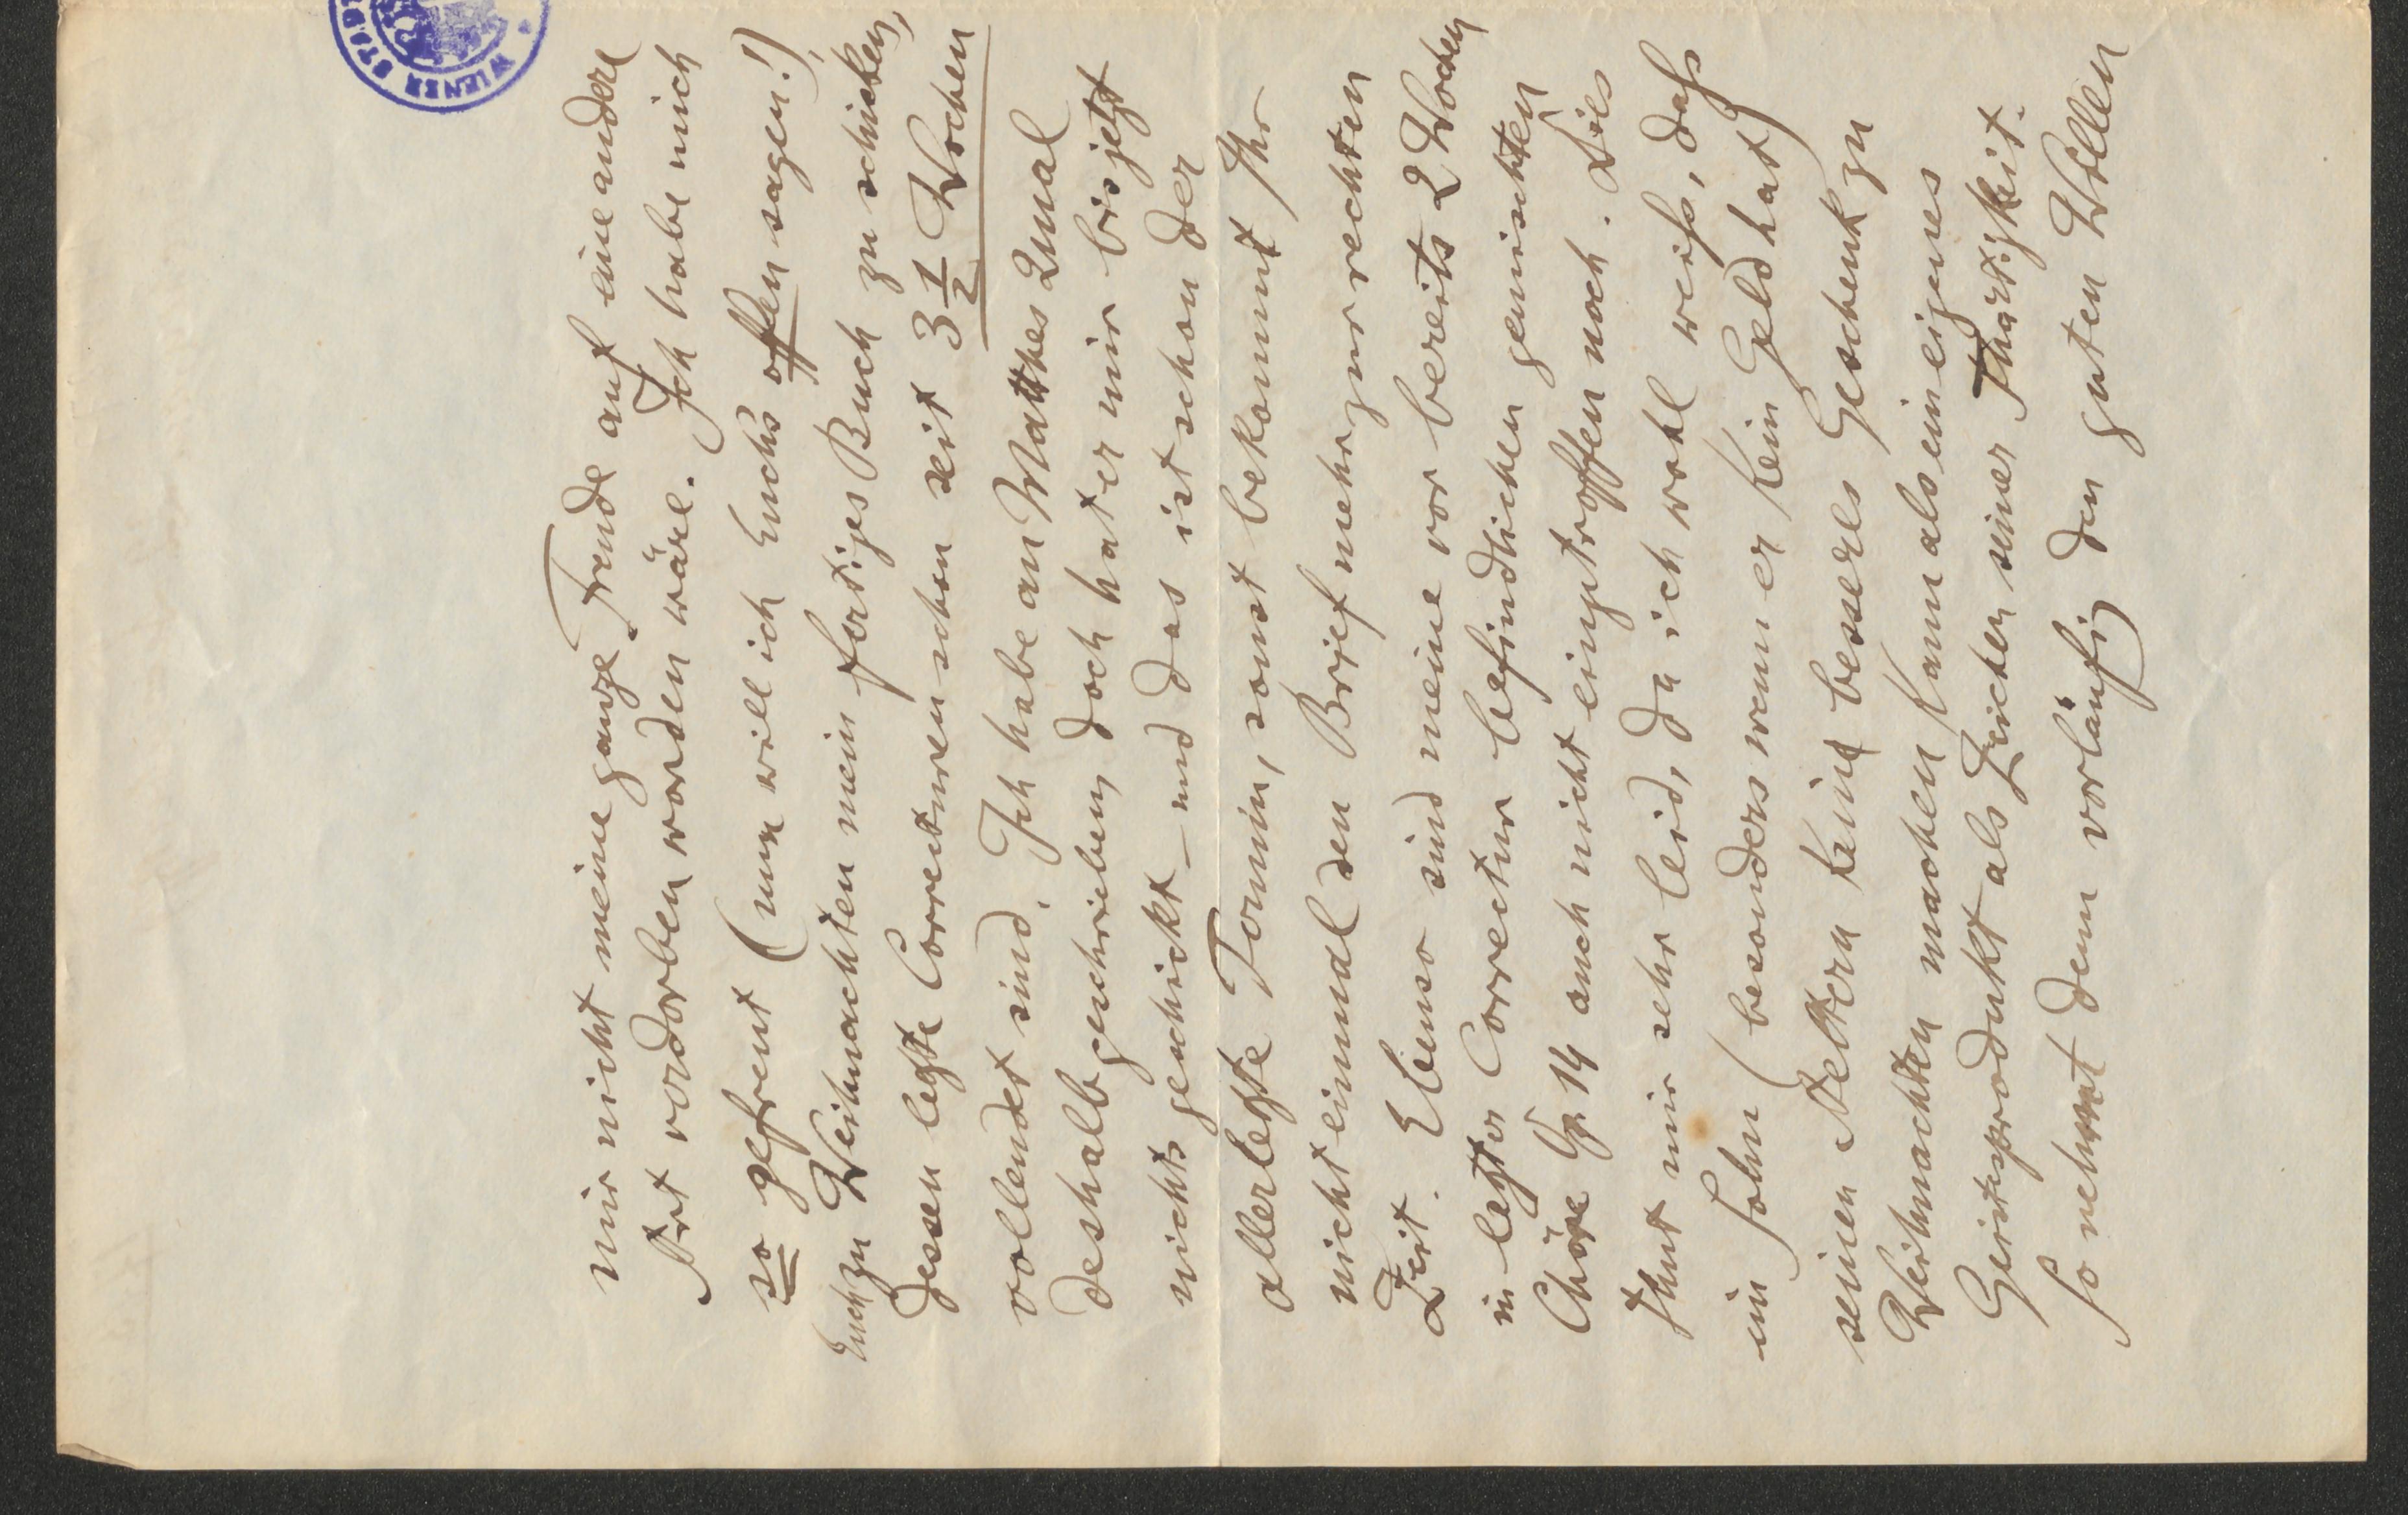 mir nicht meine ganze Freude auf eine andere
Art verdorben worden wäre. Ich habe mich
so gefreut (nun will ich Euchs offen sagen!),
Euch zu Weihnachten mein fertiges Buch zu schicken,
dessen letzte Correcturen schon seit 3 1/2 Wochen
vollendet sind. Ich habe an Matthes 2mal
deshalb geschrieben, doch hat er mir bis jetzt
nichts geschickt – und das ist schon der
allerletzte Termin, sonst bekommt Ihr
nicht einmal den Brief mehr zur rechten
Zeit. Ebenso sind meine vor bereits 2 Wochen
in letzter Correctur befindlichen gemischten
Chöre Op. 14 auch nicht eingetroffen noch. Dies
thut mir sehr leid, da ich wohl weiß, daß
ein Sohn (besonders wenn er kein Geld hat)
seinen Aeltern kein besseres Geschenk zu
Weihnachten machen kann als ein eigenes
Geistesprodukt als Zeichen seiner Thätigkeit.
So nehmt denn vorläufig den guten Willen
WIENER STADT